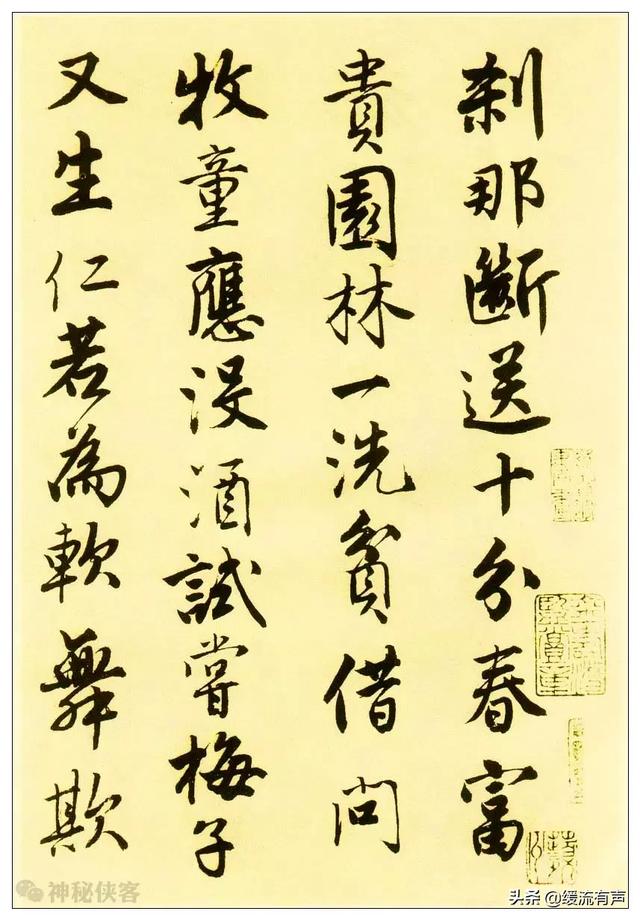 刹那斷送十分春富
貴園林一洗貧借問
牧童應沒酒試嘗梅子
又生仁若為軟舞欺
神秘侠客
头条 @缓流有声